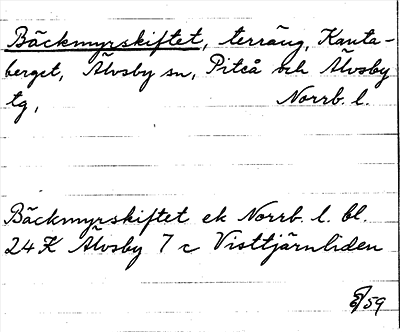 Bäckmyrskiftet, terräng, Kanta-
berget, Älvsby sn, Piteå och Älvsby
tg, Norrb. l.
Bäckmyrskiftet ek Norrb. l. bl.
24 K Älvsby 7 c Visttjärnliden
/59